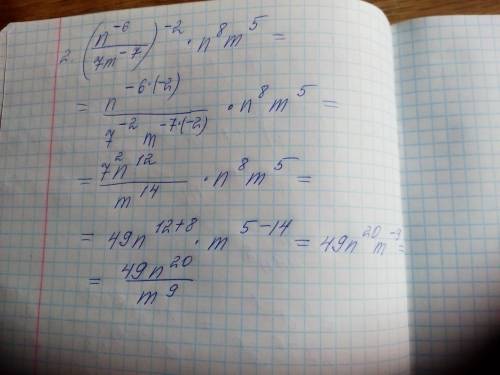 2. (n^-6 / 7m^-7)^-2 · n^8 m^5 =
= n^-6·(-2) / 7^-2 m^-7·(-2) · n^8 m^5 =
= 7^2 n^12 / m^14 · n^8 m^5 =
= 49n^12+8 · m^5-14 = 49n^20 m^-9 =
= 49n^20 / m^9